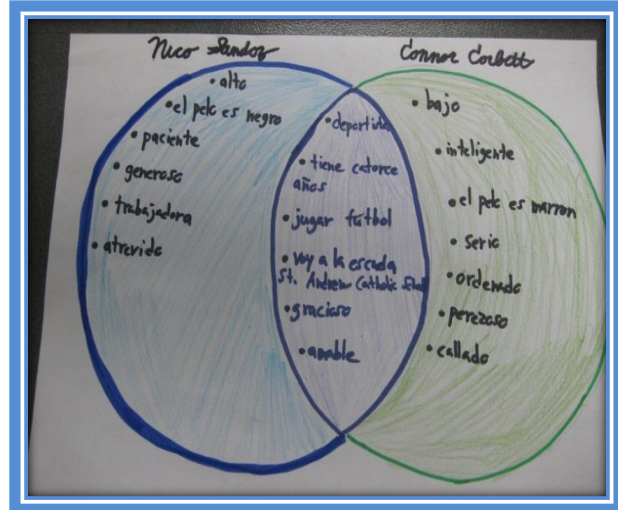 Nico Sandoz
• alto
• el pelo es negro
• paciente
• generoso
• trabajadora
• atrevido
• deportista
• tiene catorce
años
• jugar fútbol
• voy a la escuela
St. Andrew Catholic School
• gracioso
• amable
Connor Corbett
• bajo
• inteligente
• el pelo es marron
• serio
• ordenado
• perezoso
• callado